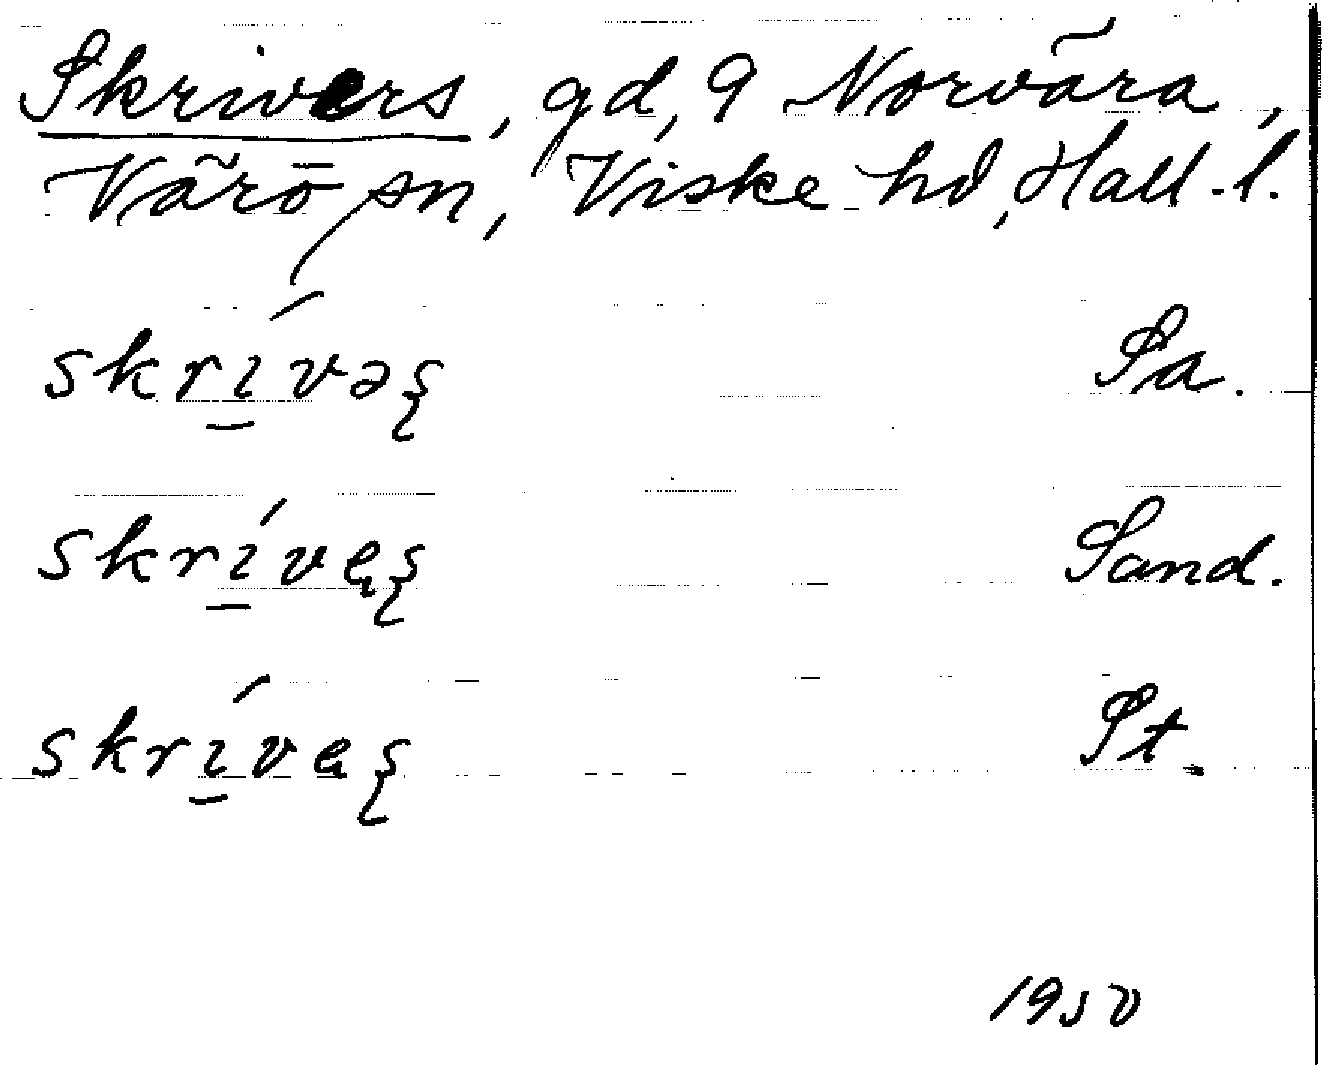 Skrivers, gd, 9 Norvära,
Värö sn, Viske hd, Hall. l.
skrí̱vəş Sa.
skrí̱vęş Sand.
skrí̱veş St.
1950